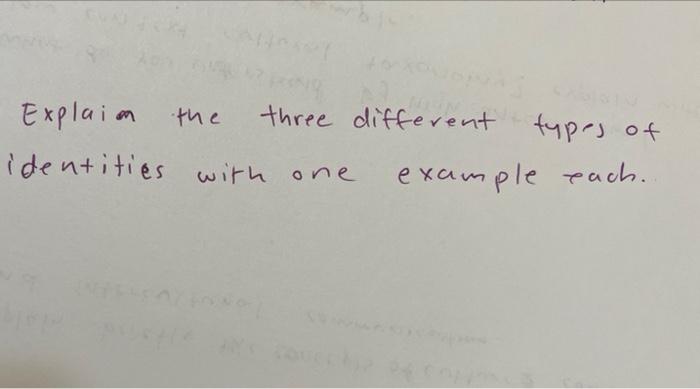 Explain the three different types of
identities with one example each.